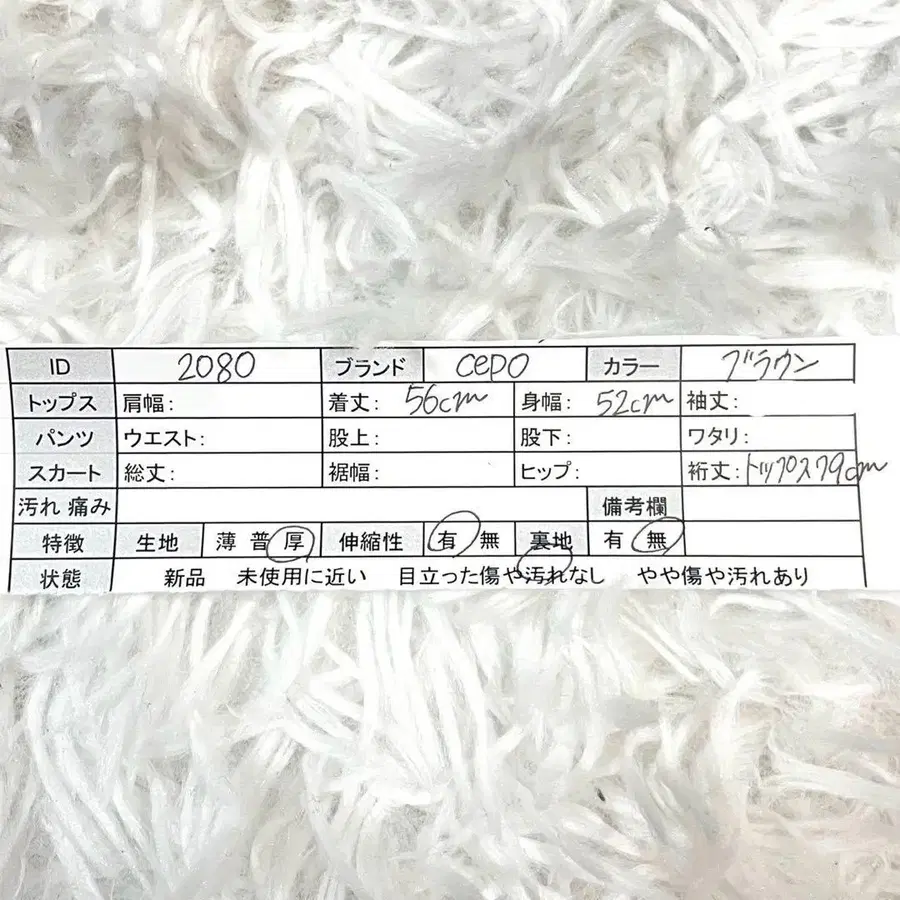 ID 2080 ブランド cepo カラー ブラウン
トップス 肩幅: 着丈: 56cm 身幅: 52cm 袖丈:
パンツ ウエスト: 股上: 股下: ワタリ:
スカート 総丈: 裾幅: ヒップ: 裄丈: トップス79cm
汚れ 痛み 備考欄
特徴 生地 薄 普 厚 伸縮性 有 無 裏地 有 無
状態 新品 未使用に近い 目立った傷や汚れなし やや傷や汚れあり